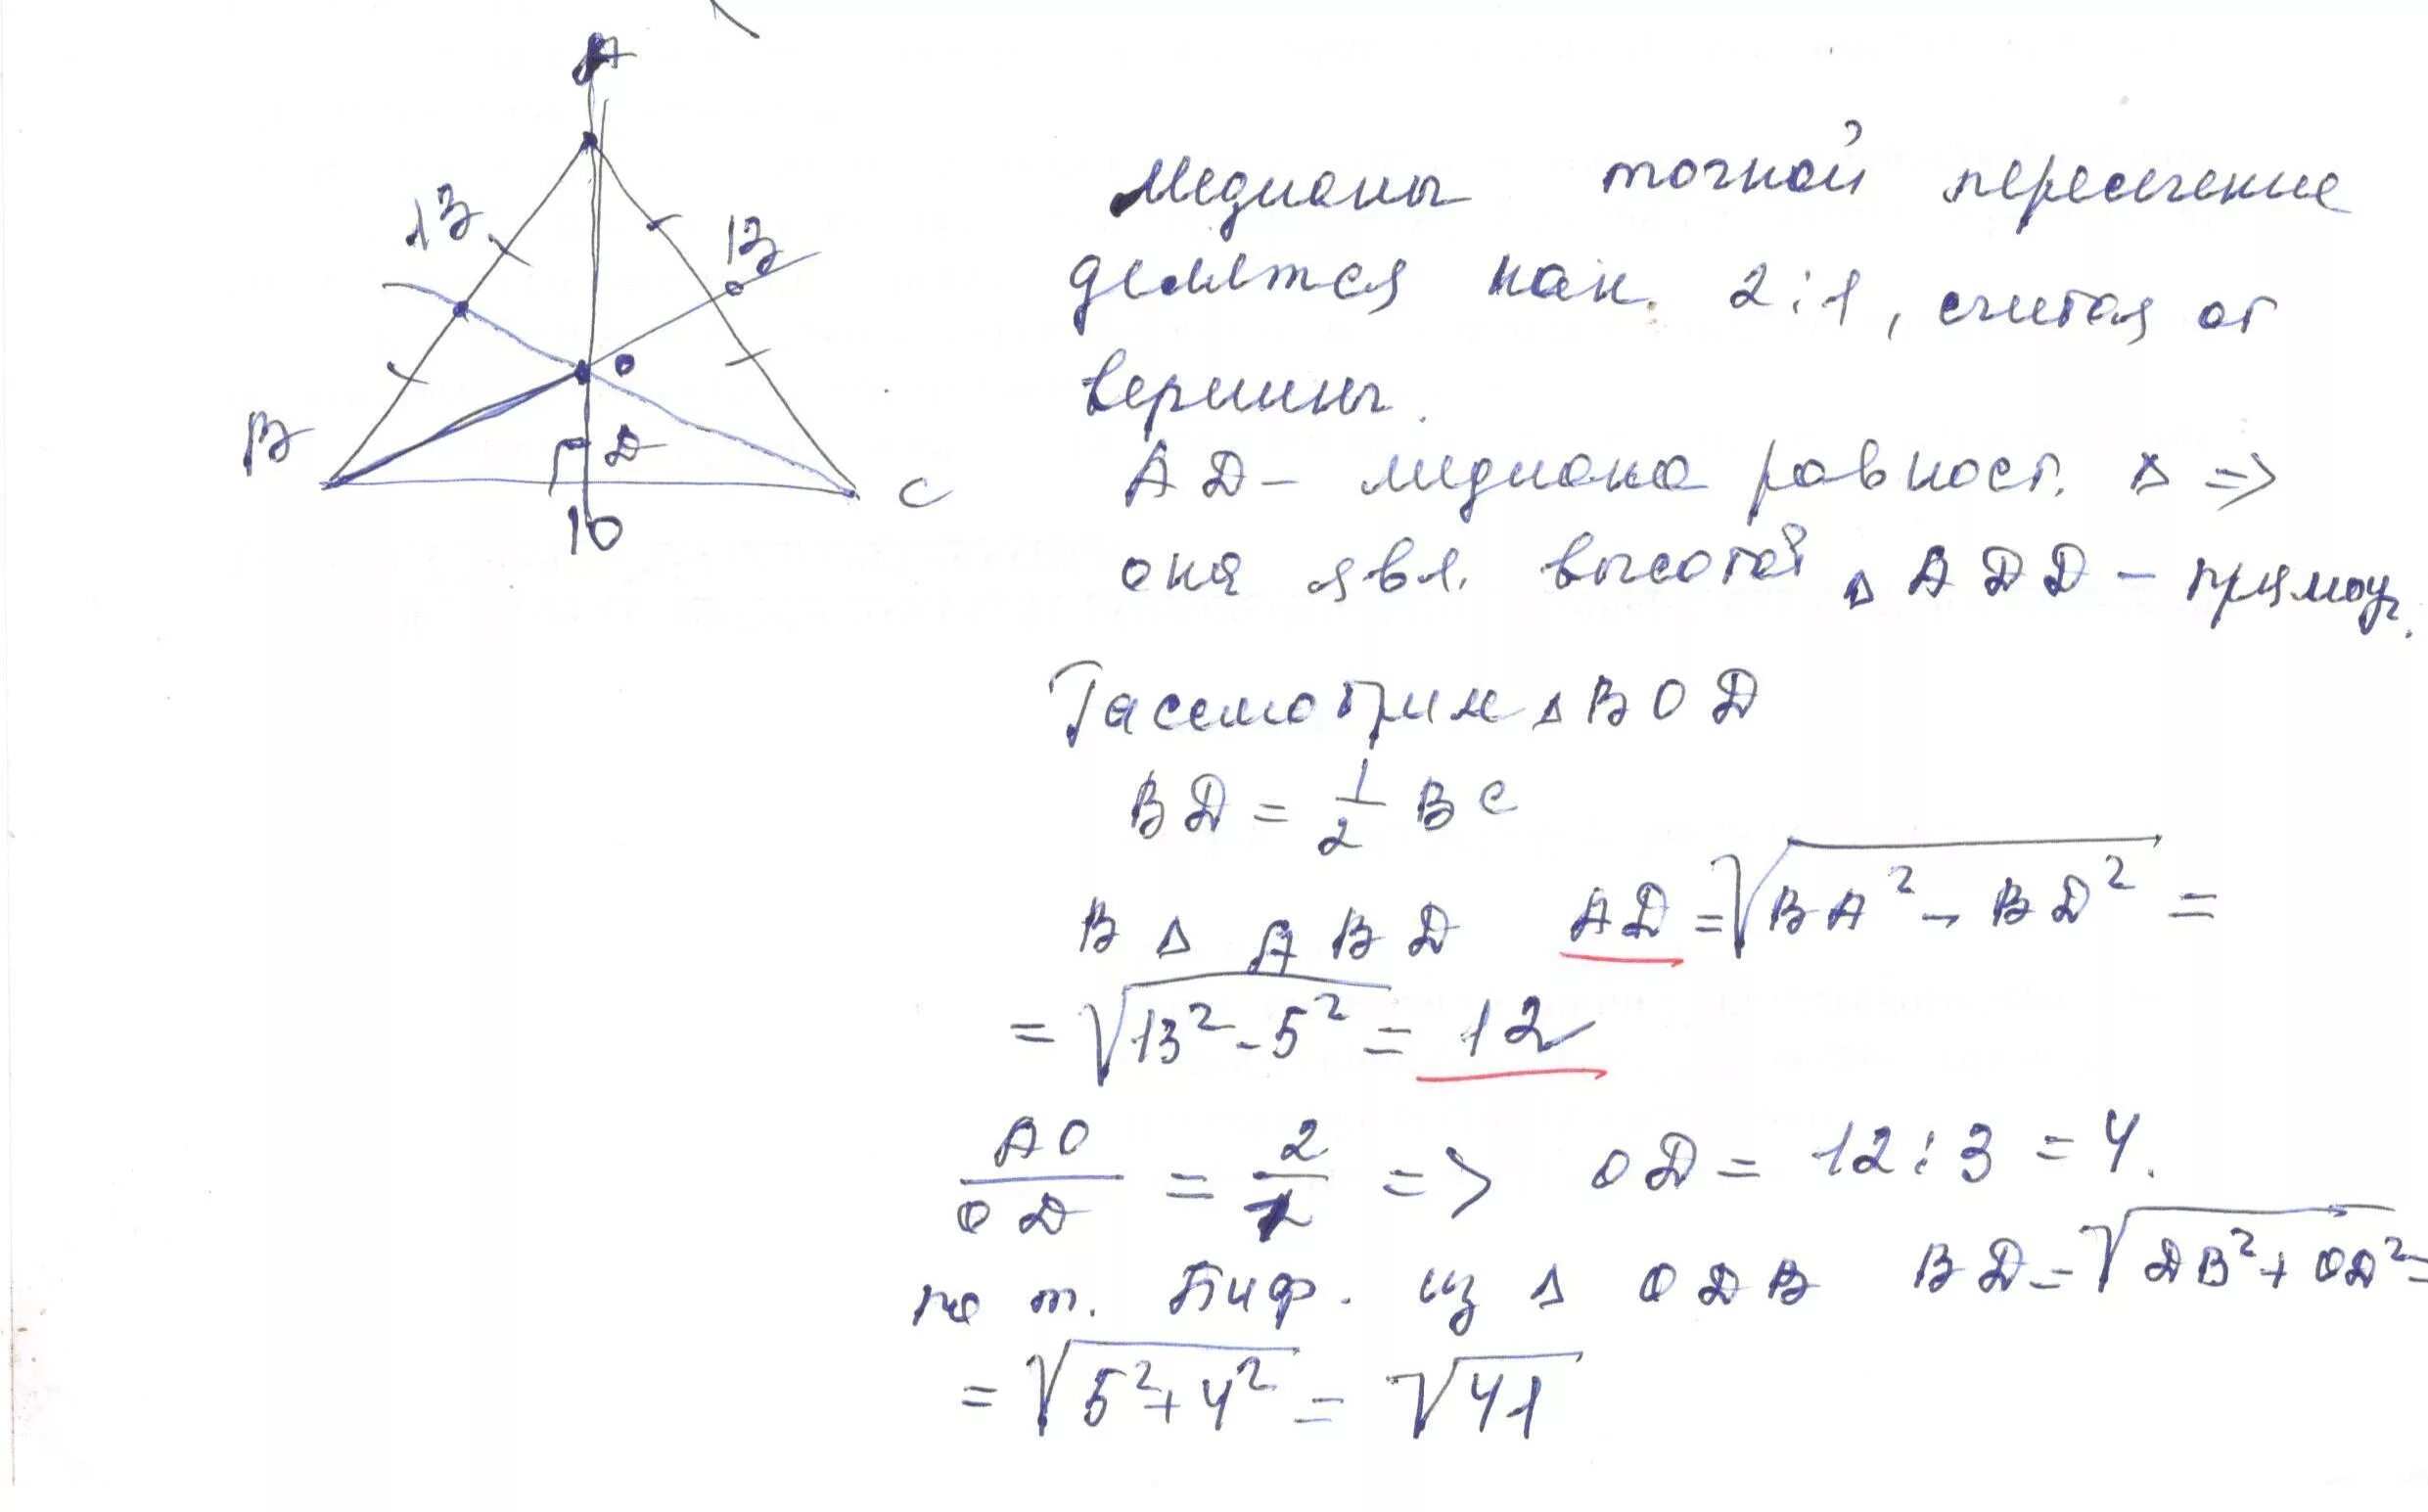 A
13
13
O
B
D
C
10
Медианы точкой пересечение
делятся как 2:1, считая от
вершины.
AD - медиана равност. Δ =>
она явл. высотой Δ ADD - прямоуг.
Рассмотрим Δ BOD
BD = 1/2 BC
В Δ ABD AD = √(BA² - BD²) =
= √(13² - 5²) = 12
AO/OD = 2/1 => OD = 12 : 3 = 4.
по т. Пиф. из Δ ODB BD = √(DB² + OD²) =
= √(5² + 4²) = √41